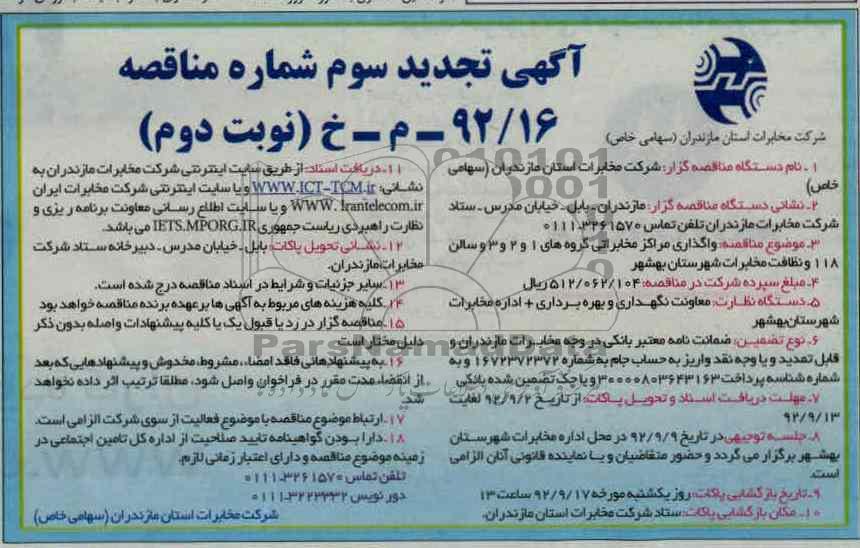 آگهی تجدید سوم شماره مناقصه
۹۲/۱۶ – م – خ (نوبت دوم)
شرکت مخابرات استان مازندران (سهامی خاص)
۱ - نام دستگاه مناقصه گزار: شرکت مخابرات استان مازندران (سهامی
خاص)
۲- نشانی دستگاه مناقصه گزار: مازندران - بابل - خیابان مدرس - ستاد
شرکت مخابرات مازندران تلفن تماس ۳۲۶۱۵۷۰-۰۱۱۱
۳- موضوع مناقصه: واگذاری مراکز مخابراتی گروه های ۱ و ۲ و ۳ و سالن
۱۱۸ و نظافت مخابرات شهرستان بهشهر
۴- مبلغ سپرده شرکت در مناقصه: ۵۱۲/۰۶۲/۱۰۴ ریال
۵- دستگاه نظارت: معاونت نگهداری و بهره برداری + اداره مخابرات
شهرستان بهشهر
۶- نوع تضمین: ضمانت نامه معتبر بانکی در وجه مخابرات مازندران و
قابل تمدید و یا وجه نقد واریز به حساب جام به شماره ۱۶۷۲۳۷۲۳۷۲ و به
شماره شناسه پرداخت ۳۰۰۰۰۸۰۳۶۴۳۱۶۳ و یا چک تضمین شده بانکی
۷- مهلت دریافت اسناد و تحویل پاکات: از تاریخ ۹۲/۹/۲ لغایت
۹۲/۹/۱۳
۸- جلسه توجیهی در تاریخ ۹۲/۹/۹ در محل اداره مخابرات شهرستان
بهشهر برگزار می گردد و حضور متقاضیان و یا نماینده قانونی آنان الزامی
است.
۹- تاریخ بازگشایی پاکات: روز یکشنبه مورخه ۹۲/۹/۱۷ ساعت ۱۳
۱۰- مکان بازگشایی پاکات: ستاد شرکت مخابرات استان مازندران.
۱۱- دریافت اسناد: از طریق سایت اینترنتی شرکت مخابرات مازندران به
نشانی: WWW.ICT-TCM.ir و یا سایت اینترنتی شرکت مخابرات ایران
WWW.Irantelecom.ir و یا سایت اطلاع رسانی معاونت برنامه ریزی و
نظارت راهبردی ریاست جمهوری IETS.MPORG.IR می باشد.
۱۲- نشانی تحویل پاکات: بابل - خیابان مدرس - دبیرخانه ستاد شرکت
مخابرات مازندران.
۱۳- سایر جزئیات و شرایط در اسناد مناقصه درج شده است.
۱۴- کلیه هزینه های مربوط به آگهی ها بر عهده برنده مناقصه خواهد بود
۱۵- مناقصه گزار در رد یا قبول یک یا کلیه پیشنهادات واصله بدون ذکر
دلیل مختار است.
۱۶- به پیشنهادهائی فاقد امضاء، مشروط، مخدوش و پیشنهادهایی که بعد
از انقضاء مدت مقرر در فراخوان واصل شود، مطلقا ترتیب اثر داده نخواهد
شد.
۱۷- ارتباط موضوع مناقصه با موضوع فعالیت از سوی شرکت الزامی است.
۱۸- دارا بودن گواهینامه تایید صلاحیت از اداره کل تامین اجتماعی در
زمینه موضوع مناقصه و دارای اعتبار زمانی لازم.
تلفن تماس ۳۲۶۱۵۷۰-۰۱۱۱
دور نویس ۳۲۲۳۳۳۲-۰۱۱۱
شرکت مخابرات استان مازندران (سهامی خاص)